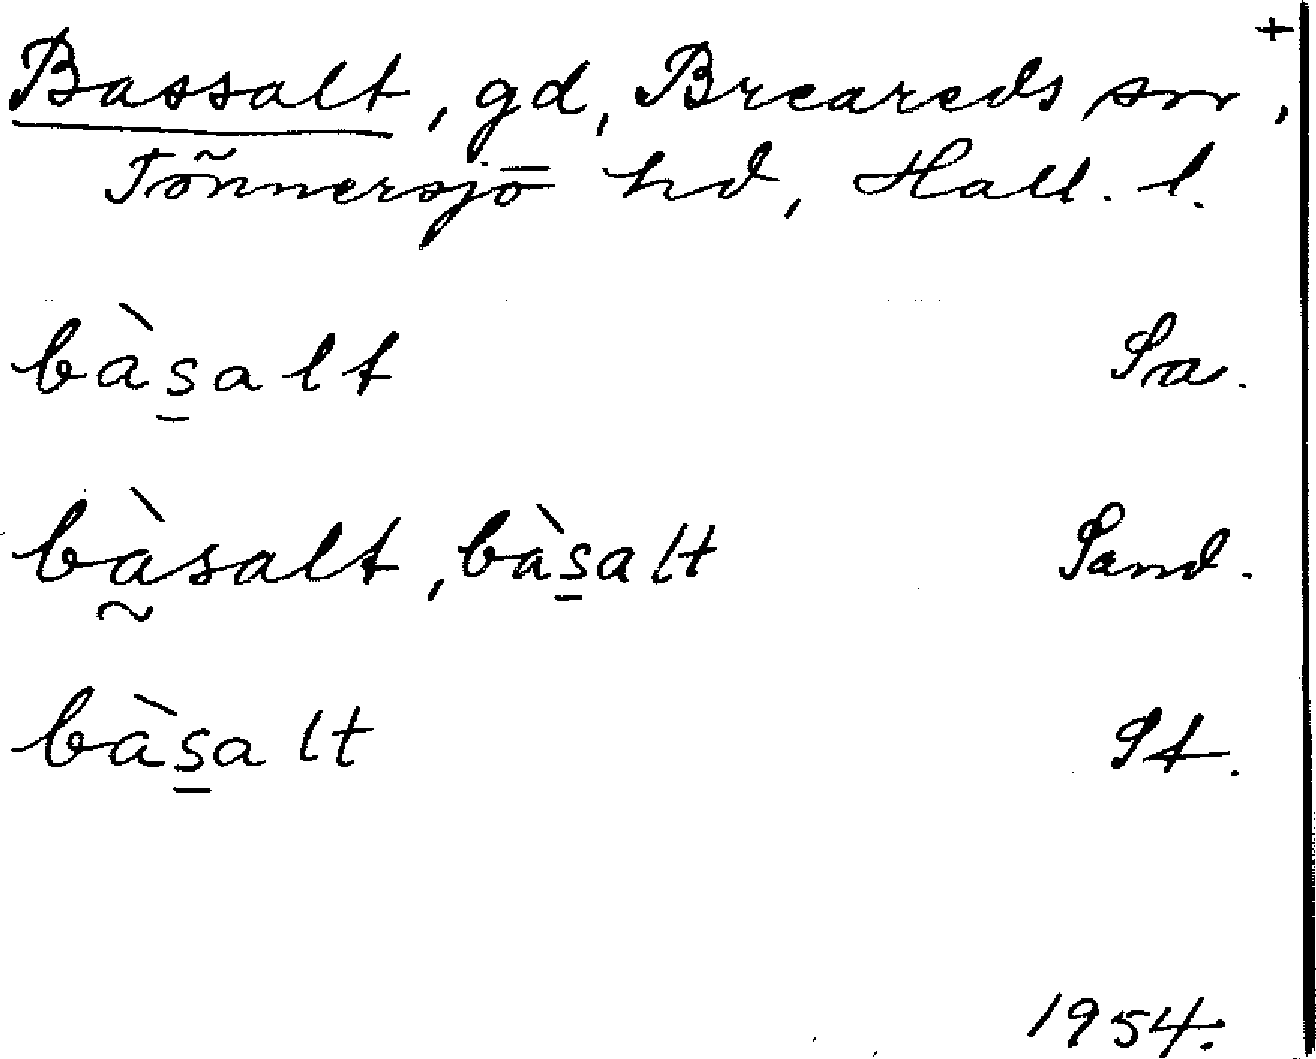 +
Bassalt, gd, Breareds sn,
Tönnersjö hd, Hall. l.
bàs̲alt Sa.
bà̰salt, bàs̲alt Sand.
bàs̲alt St.
1954.